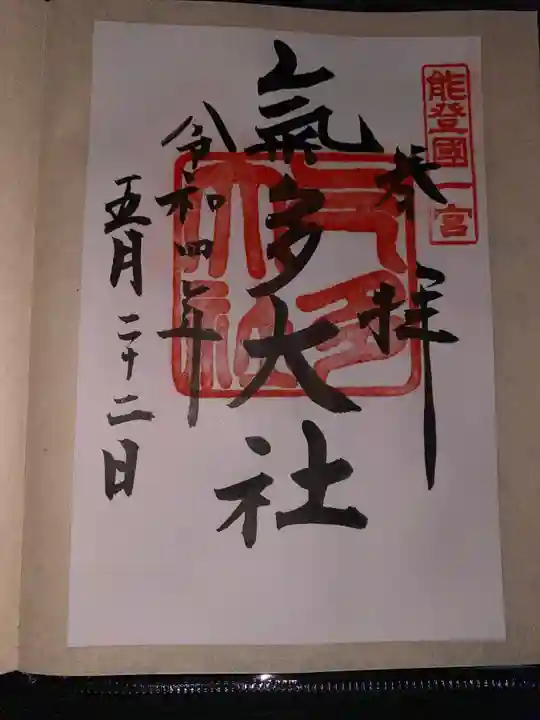 能登國一宮
奉拝
氣多大社
令和四年
五月二十二日
氣多
大社